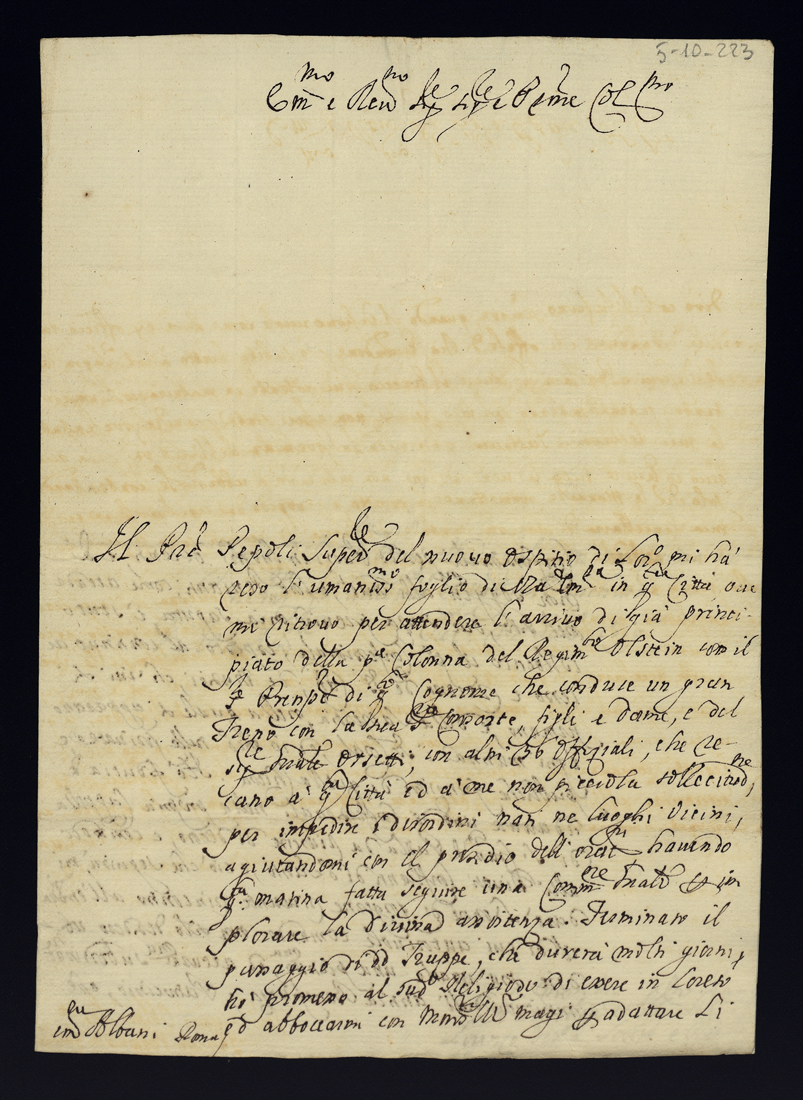 5-10-223
Em:mo e Reu:mo Sig:re Sig:re e Prōne Col:mo
Il Pre Pepoli Super:re del nuovo Ospitio di Lor:o mi hà
reso l'umaniss:mo foglio di Vra Em:za in q:ta Città oue
mi ritrouo per attendere l'arriuo di già princi-
piato della p:a Colonna del Regim:to Olstein con il
di q:to Cognome che conduce un gran
Treno con la sua Consorte, figli e Dame, e del
Sig:re Gñale Orsetti, con altri 36 Offiziali, che re-
cano à q:ta Città ed à me non picciola sollecitud:ne
per impedire i disordini nati ne luoghi Vicini,
agiutandomi con il presidio dell' oraz:ni hauendo
q:ta matina fatta seguire una Comm:ne Gñale p im
plorare la Diuina assistenza. Terminato il
passaggio di dd Truppe, che durerà molti giorni,
hò promesso al sud:o Religioso di essere in Loreto
ed abboccarmi con Mons:r Magi p adattare li
Albani Roma